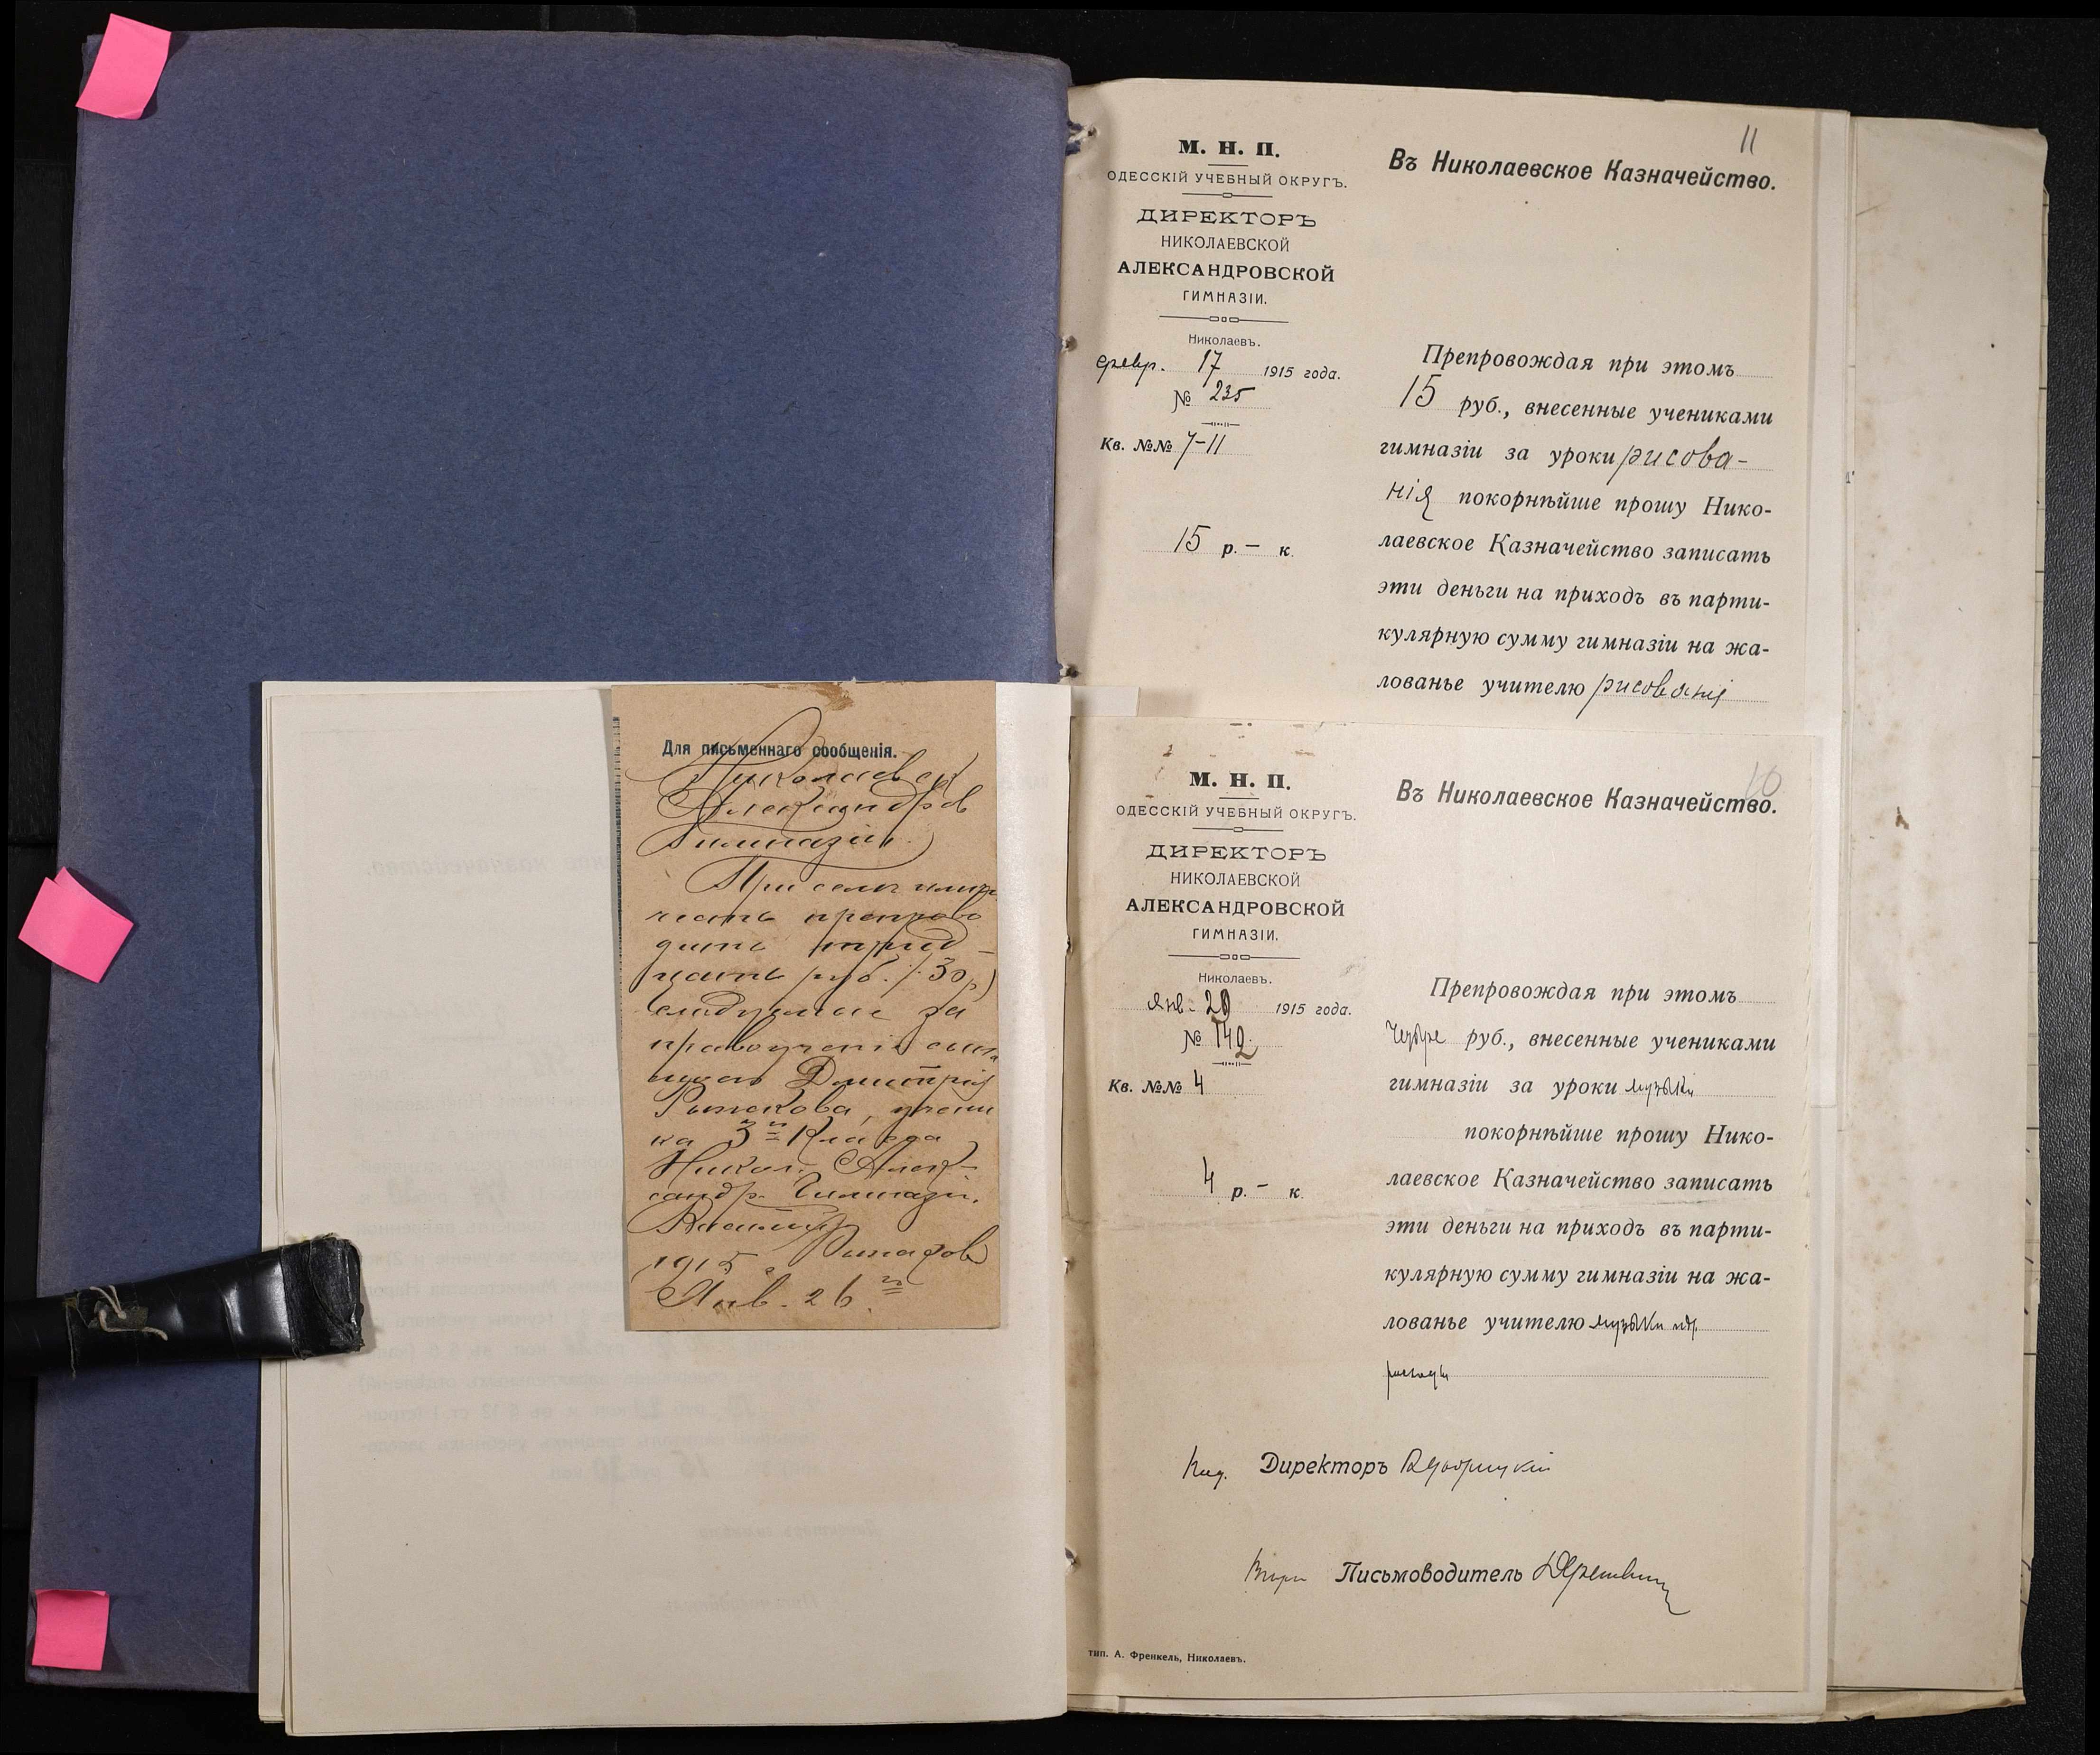 Для письменнаго сообщенія.
Николаевск
Александров
Гимназіи.
При семъ имѣю
честь препрово
дить трид-
цать руб. (30 р.)
следуемые за
правоученіе сына
моего Дмитрія
ка 3го Класса
Никол. Алек-
сандр. Гимназіи.
1915 г.
Янв. 26го
11
М. Н. П.
ОДЕССКІЙ УЧЕБНЫЙ ОКРУГЪ.
ДИРЕКТОРЪ
НИКОЛАЕВСКОЙ
АЛЕКСАНДРОВСКОЙ
ГИМНАЗІИ.
Николаевъ.
февр. 17 1915 года.
№ 235
Кв. №№ 7-11
15 р. - к.
Въ Николаевское Казначейство.
Препровождая при этомъ
15 руб., внесенные учениками
гимназіи за уроки рисова-
нія покорнѣйше прошу Нико-
лаевское Казначейство записать
эти деньги на приходъ въ парти-
кулярную сумму гимназіи на жа-
лованье учителю рисованія
10
М. Н. П.
ОДЕССКІЙ УЧЕБНЫЙ ОКРУГЪ.
ДИРЕКТОРЪ
НИКОЛАЕВСКОЙ
АЛЕКСАНДРОВСКОЙ
ГИМНАЗІИ.
Николаевъ.
Янв. 20 1915 года.
№ 142
Кв. №№ 4
4 р. - к.
Въ Николаевское Казначейство.
Препровождая при этомъ
четыре руб., внесенные учениками
гимназіи за уроки музыки
покорнѣйше прошу Нико-
лаевское Казначейство записать
эти деньги на приходъ въ парти-
кулярную сумму гимназіи на жа-
лованье учителю музыки и др.
расходы
Директоръ
Письмоводитель
тип. А. Френкель, Николаевъ.